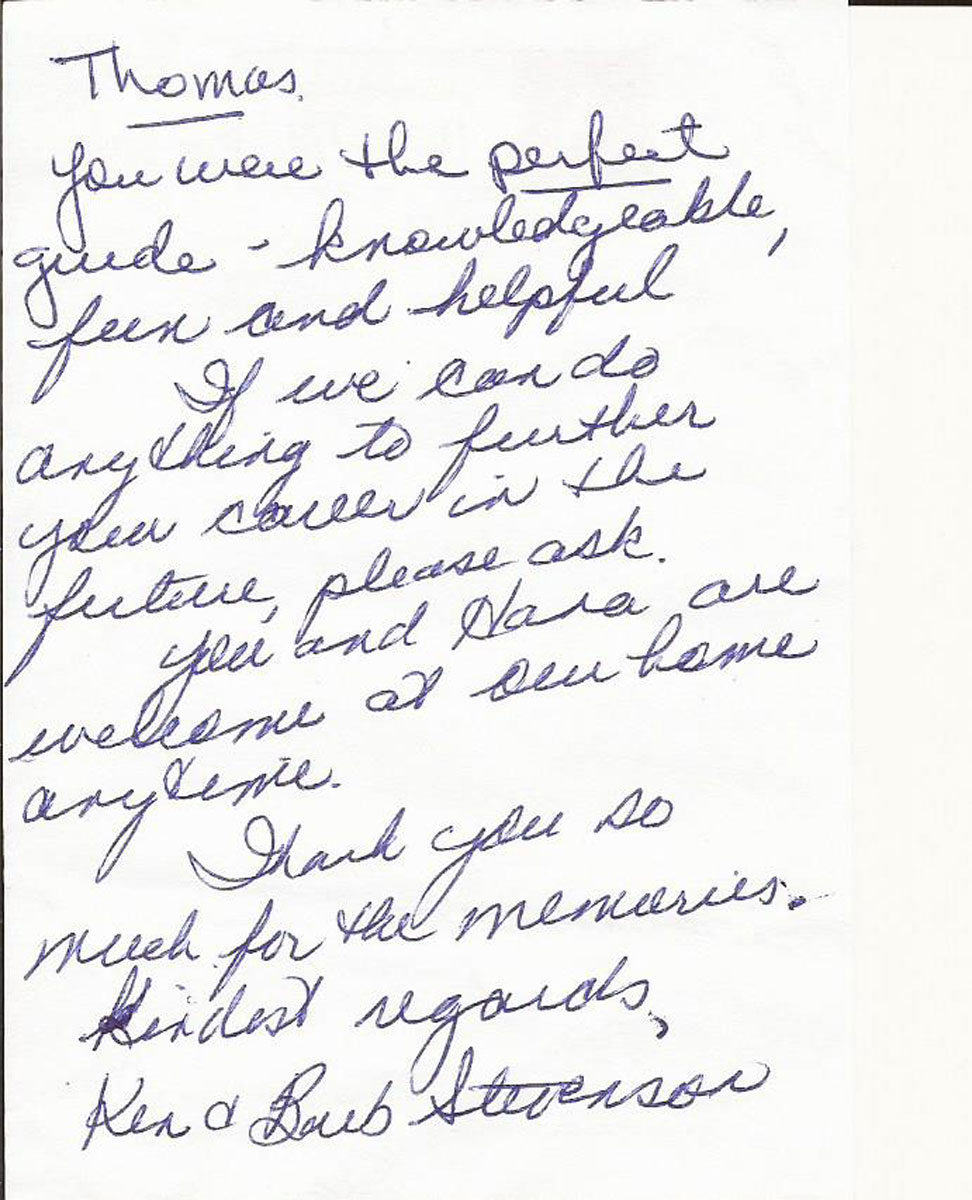 Thomas,
You were the perfect
guide - knowledgeable,
fun and helpful
If we can do
anything to further
your career in the
future, please ask.
You and Hana are
welcome at our home
anytime.
Thank you so
much for the memories.
Kindest regards,
Ken & Barb Stevenson